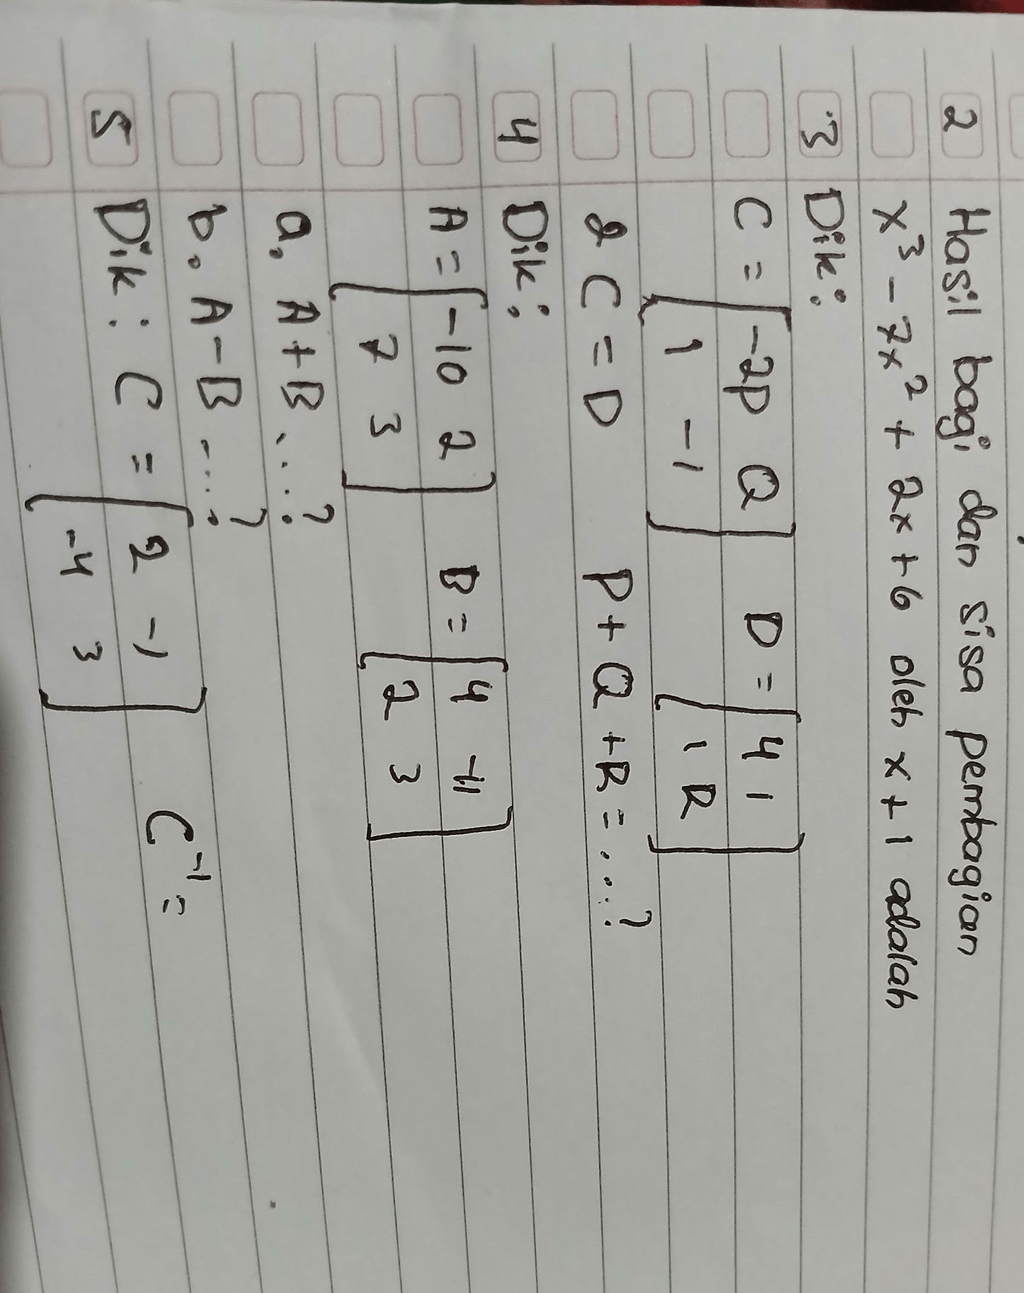 2 Hasil bagi dan sisa pembagian
x³ - 7x² + 2x + 6 oleh x + 1 adalah
3 Dik :
C = [-2P Q] D = [4 1]
[1 -1] [1 R]
2C = D P + Q + R = ....?
4 Dik :
A = [-10 2] B = [4 -11]
[7 3] [2 3]
a. A + B ....?
b. A - B ....?
5 Dik : C = [2 -1] C⁻¹ =
[-4 3]